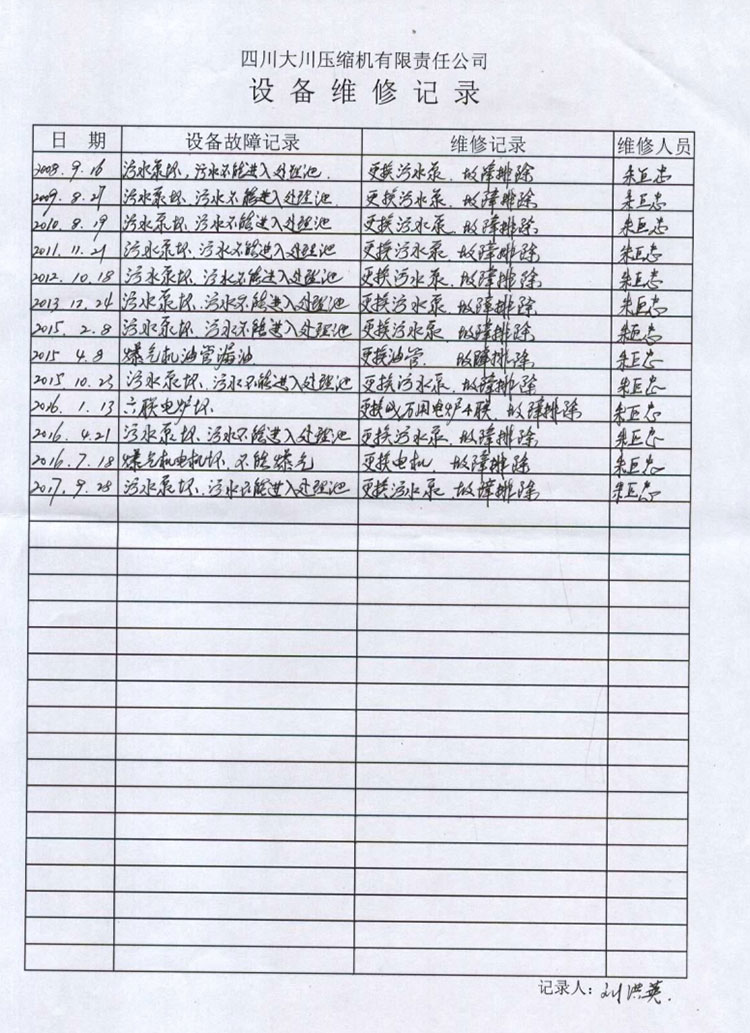 四川大川压缩机有限责任公司
设备维修记录
日 期 设备故障记录 维修记录 维修人员
2008.9.16 污水泵坏,污水不能进入处理池. 更换污水泵.故障排除 朱巨忠
2009.8.27 污水泵坏.污水不能进入处理池. 更换污水泵.故障排除 朱巨忠
2010.8.19 污水泵坏.污水不能进入处理池. 更换污水泵.故障排除 朱巨忠
2011.11.21 污水泵坏.污水不能进入处理池 更换污水泵.故障排除 朱巨忠
2012.10.18 污水泵坏.污水不能进入处理池 更换污水泵.故障排除 朱巨忠
2013.12.24 污水泵坏.污水不能进入处理池 更换污水泵.故障排除 朱巨忠
2015.2.8 污水泵坏.污水不能进入处理池 更换污水泵.故障排除 朱巨忠
2015 4.8 爆气机油管漏油 更换油管.故障排除 朱巨忠
2015 10.23 污水泵坏.污水不能进入处理池 更换污水泵.故障排除 朱巨忠
2016.1.13 六联电炉坏. 更换成万用电炉4联.故障排除 朱巨忠
2016.4.21 污水泵坏.污水不能进入处理池 更换污水泵.故障排除 朱巨忠
2016.7.18 爆气机电机坏.不能爆气 更换电机.故障排除 朱巨忠
2017.9.28 污水泵坏.污水不能进入处理池 更换污水泵.故障排除 朱巨忠
记录人:刘洪英.